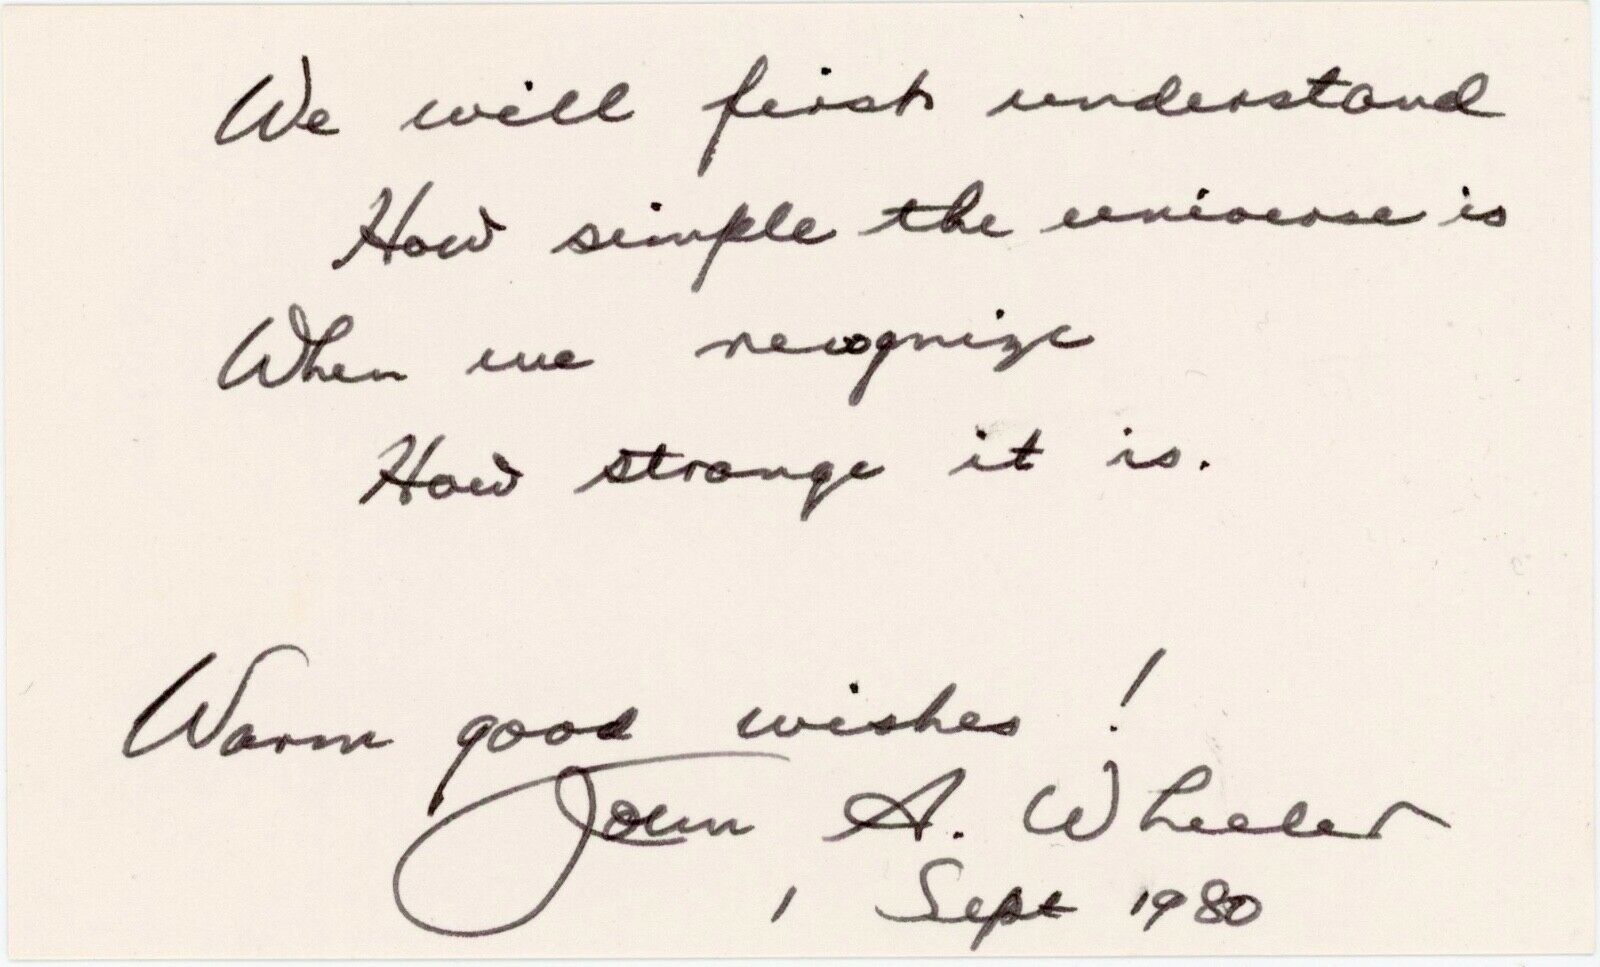 We will first understand
How simple the universe is
When we recognize
How strange it is.
Warm good wishes!
John A. Wheeler
1 Sept 1980